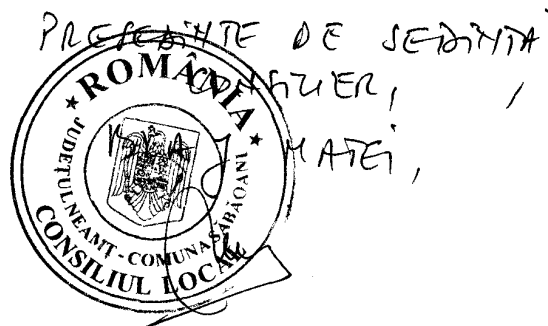 PREȘEDINTE DE ȘEDINȚĂ
CONSILIER,
MATEI,
★ ROMÂNIA ★
JUDEȚUL NEAMȚ - COMUNA SĂBĂOANI
CONSILIUL LOCAL